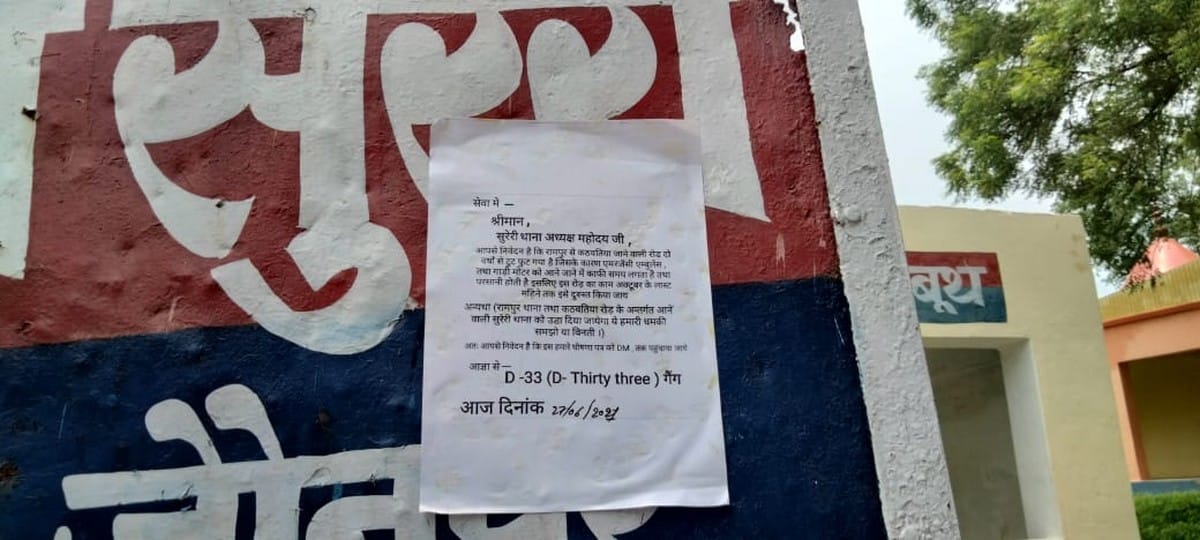 सुरेरी
सेवा मे —
श्रीमान ,
सुरेरी थाना अध्यक्ष महोदय जी ,
आपसे निवेदन है कि रामपुर से कठवतिया जाने वाली रोड़ दो
वर्षों से टूट फूट गया है जिसके कारण एमरजेंसी एम्बुलेंस ,
तथा गाड़ी मोटर को आने जाने में काफी समय लगता है तथा
परसानी होती है इसलिए इस रोड़ का काम अक्टूबर के लास्ट
महिने तक इसे दुरस्त किया जाय
अन्यथा (रामपुर थाना तथा कठवतिया रोड़ के अन्तर्गत आने
वाली सुरेरी थाना को उड़ा दिया जायेगा ये हमारी धमकी
समझो या विनती ।)
अतः आपसे निवेदन है कि इस हमारे घोषणा पत्र को DM , तक पहुंचाया जाये
आज्ञा से —
D -33 (D- Thirty three ) गैंग
आज दिनांक 27/06/2021
बूथ